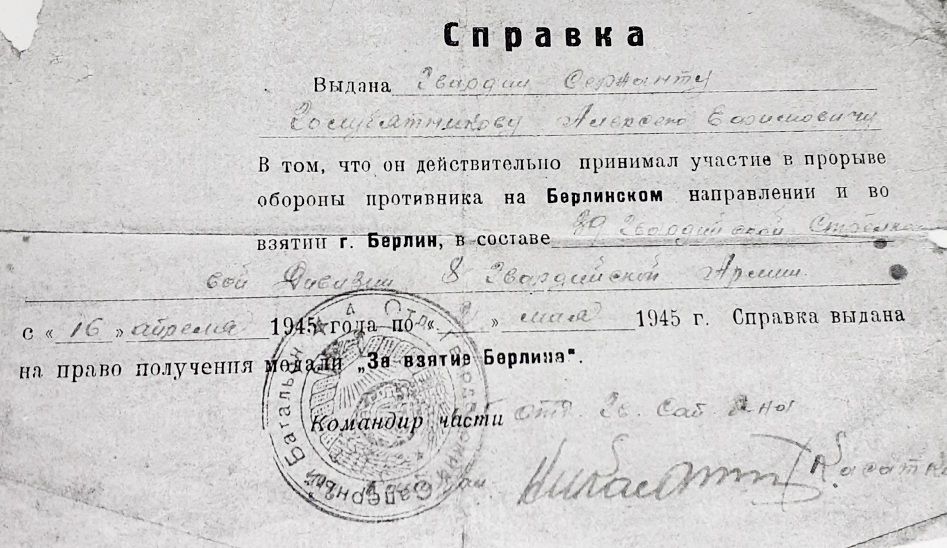 Справка
Выдана Гвардии Сержанту
Алексею
В том, что он действительно принимал участие в прорыве
обороны противника на Берлинском направлении и во
взятии г. Берлин, в составе 39 Гвардейской Стрелко
вой Дивизии 8 Гвардейской Армии.
с « 16 » апреля 1945 года по « 2 » мая 1945 г. Справка выдана
на право получения медали „За взятие Берлина".
Командир части отд. Гв. Сап. б-на
Касатк
Отд. Гвардейский Саперный Батальон